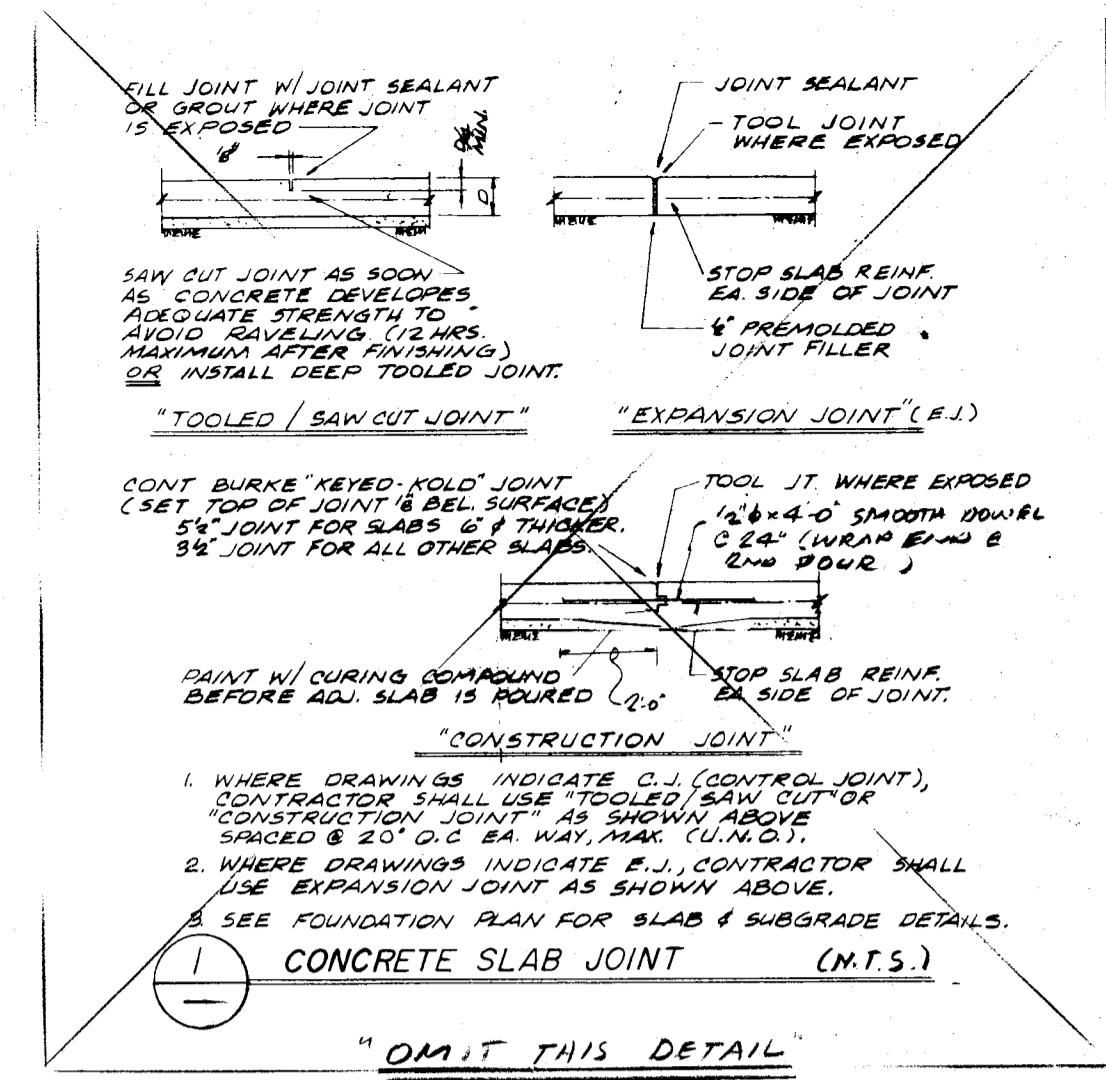 FILL JOINT W/ JOINT SEALANT
OR GROUT WHERE JOINT
IS EXPOSED
1/8"
D/4
MIN.
D
JOINT SEALANT
TOOL JOINT
WHERE EXPOSED
SAW CUT JOINT AS SOON
AS CONCRETE DEVELOPES
ADEQUATE STRENGTH TO
AVOID RAVELING (12 HRS.
MAXIMUM AFTER FINISHING)
OR INSTALL DEEP TOOLED JOINT.
STOP SLAB REINF.
EA. SIDE OF JOINT
PREMOLDED
JOINT FILLER
"TOOLED / SAW CUT JOINT"
"EXPANSION JOINT" (E.J.)
CONT BURKE "KEYED-KOLD" JOINT
(SET TOP OF JOINT 1/8 BEL. SURFACE)
5½" JOINT FOR SLABS 6" & THICKER.
3½" JOINT FOR ALL OTHER SLABS.
TOOL JT. WHERE EXPOSED
1/2"ϕ x 4'-0" SMOOTH DOWEL
@ 24" (WRAP END @
2ND POUR)
PAINT W/ CURING COMPOUND
BEFORE ADJ. SLAB IS POURED
2'-0"
STOP SLAB REINF.
EA SIDE OF JOINT.
"CONSTRUCTION JOINT"
1. WHERE DRAWINGS INDICATE C.J. (CONTROL JOINT),
CONTRACTOR SHALL USE "TOOLED/SAW CUT" OR
"CONSTRUCTION JOINT" AS SHOWN ABOVE
SPACED @ 20' O.C EA. WAY, MAX. (U.N.O.).
2. WHERE DRAWINGS INDICATE E.J., CONTRACTOR SHALL
USE EXPANSION JOINT AS SHOWN ABOVE.
3. SEE FOUNDATION PLAN FOR SLAB & SUBGRADE DETAILS.
1
CONCRETE SLAB JOINT (N.T.S.)
"OMIT THIS DETAIL"